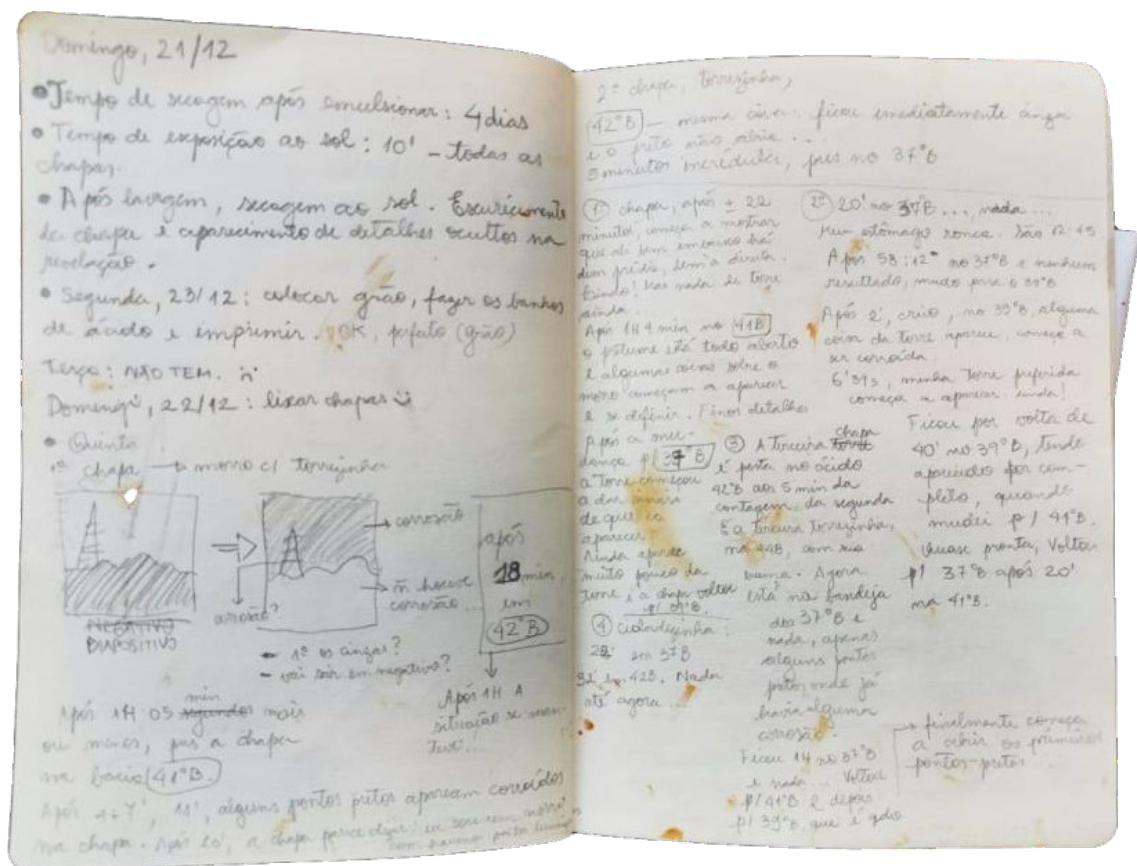 Domingo, 21/12
• Tempo de secagem após emulsionar: 4 dias
• Tempo de exposição ao sol: 10' - todas as
chapas.
• Após lavagem, secagem ao sol. Escurecimento
da chapa e aparecimento de detalhes ocultos na
revelação.
• Segunda, 23/12: colocar grão, fazer os banhos
de ácido e imprimir. OK, perfeito (grão)
Terça: NÃO TEM.
Domingo, 22/12: lixar chapas
• Quinta
1ª chapa → morro c/ torrezinha
NEGATIVO
DIAPOSITIVO
corrosão
ñ houve
corrosão...
corrosão?
- 1º os cinzas?
- vai sair em negativo?
após
18 min,
em
42°B
Após 1H A
situação se
Após 1H 05 segundos min mais
ou menos, pus a chapa
na bacia 41°B.
Após 4+7', 11', alguns pontos pretos aparecem corroídos
na chapa. Após 20', a chapa parece dizer: eu sou um morro
2ª chapa, torrezinha,
42°B — mesma coisa: ficou imediatamente cinza
e o preto não abria...
5 minutos incrédulos, pus no 37°B
1ª chapa, após ± 22
minutos, começa a mostrar
que ali bem embaixo há
um prédio, bem à direita.
Lindo! Mas nada de torre
ainda.
Após 1H 4 min no 41B
o está todo aberto
e algumas coisas sobre o
morro começam a aparecer
e se definir. Finos detalhes
Após a mu-
dança p/ 37°B
a torre começou
a dar sinais
de que ia
aparecer.
Ainda aparece
muito pouco da
torre, a chapa voltou
p/ 39°B.
4 cidadezinha:
22' em 37B
32' em 42B. Nada
até agora...
2ª 20' no 37B..., nada...
Meu estômago ronca. São 12:45
Após 58:12" no 37°B e nenhum
resultado, mudo para o 39°B
Após 2', creio, no 39°B, alguma
coisa da torre aparece, começa a
ser corroída.
6'39s, minha torre preferida
começa a aparecer. Linda!
Ficou por volta de
40' no 39°B, tendo
aparecido por com-
pleto, quando
mudei p/ 41°B.
Quase pronta, Voltou
p/ 37°B após 20'
no 41°B.
3 A terceira torre chapa
é posta no ácido
42°B aos 5 min da
contagem da segunda
E a terceira torrezinha,
na 42B, com sua
Agora
está na bandeja
dos 37°B e
nada, apenas
alguns pontos
pretos onde já
havia alguma
corrosão.
Ficou 1H no 37°B
e nada... Voltou
p/ 41°B e depois
p/ 39°B, que é
→ finalmente começa
a abrir os primeiros
pontos-pretos